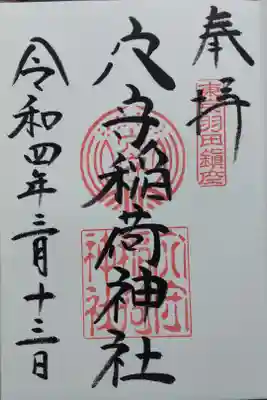 奉拝
東京羽田鎮座
穴守稲荷神社
令和四年三月十三日